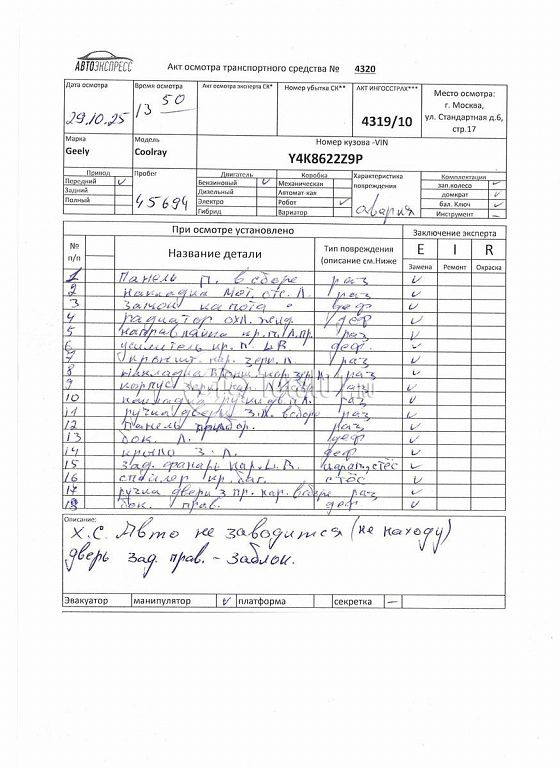 АВТОЭКСПРЕСС
Акт осмотра транспортного средства № 4320
Дата осмотра
29.10.25
Время осмотра
13 50
Акт осмотра эксперта СК*
Номер убытка СК**
АКТ ИНГОССТРАХ***
4319/10
Место осмотра:
г. Москва,
ул. Стандартная д.6,
стр.17
Марка
Geely
Модель
Coolray
Номер кузова -VIN
Y4K8622Z9P
Привод
Передний ✓
Задний
Полный
Пробег
45694
Двигатель
Бензиновый ✓
Дизельный
Электро
Гибрид
Коробка
Механическая
Автомат-кая
Робот ✓
Вариатор
Характеристика
повреждения
авария
Комплектация
зап.колесо ✓
домкрат ✓
бал. Ключ ✓
Инструмент –
При осмотре установлено
Заключение эксперта
№
п/п
Название детали
Тип повреждения
(описание см.Ниже
E I R
Замена Ремонт Окраска
1 Панель п. в сборе раз ✓
2 накладка мот. отс. Л раз ✓
3 замок капота деф ✓
4 радиатор охл. деф ✓
5 раз ✓
6 усилитель деф. ✓
7 кроншт. нар. зерк. Л. раз ✓
8 накладка раз ✓
9 корпус зерк. нар. раз ✓
10 накладка раз ✓
11 ручка двери З.Л. в сборе раз ✓
12 панель прибор. раз ✓
13 бок. Л. деф ✓
14 крыло З. Л. деф ✓
15 зад. фонарь нар. L.R. ✓
16 спойлер кр. баг. ✓
17 ручка двери З пр. нар. в сборе раз ✓
18 бок. прав. деф ✓
Описание:
Х.С. Авто не заводится (не находу)
дверь зад. прав. - заблок.
Эвакуатор манипулятор ✓ платформа секретка –